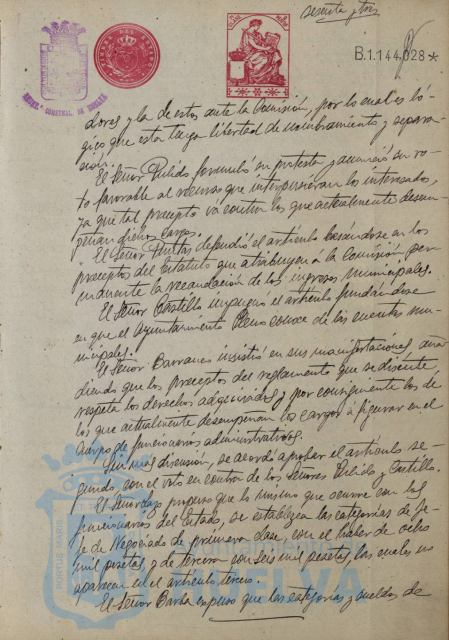 sesenta y tres
B.1.144,028*
AYUNT.º CONSTNAL. DE HUELVA
dores y la de estos ante la Comisión, por lo cual es ló-
gico que esta tenga libertad de nombramiento y separa-
ción.
El Señor Pulido formuló su protesta y anunció su vo-
to favorable al recurso que interpusieran los interesados,
ya que tal precepto vá contra los que actualmente desem-
peñan dichos cargos.
El Señor defendió el artículo basándose en los
preceptos del Estatuto que atribuyen á la Comisión per-
manente la recaudación de los ingresos municipales.
El Señor Castillo impugnó el artículo fundándose
en que el Ayuntamiento Pleno conoce de las cuentas mu-
nicipales.
El Señor Barranco insistió en sus manifestaciones aña-
diendo que los preceptos del reglamento que se discute,
respeta los derechos adquiridos y por consiguiente los de
los que actualmente desempeñan los cargos á figurar en el
cuerpo de funcionarios administrativos.
Sin mas discusión, se acordó aprobar el artículo se-
gundo, con el voto en contra de los Señores Pulido y Castillo.
El Señor propuso que lo mismo que ocurre con los
funcionarios del Estado, se establezca las categorías de Je-
fe de Negociado de primera clase con el haber de ocho
mil pesetas, y de tercera con seis mil pesetas, las cuales no
aparecen en el artículo tercero.
El Señor Barba expuso que las categorías y sueldos de
PORTUS MARIS
HUELVA